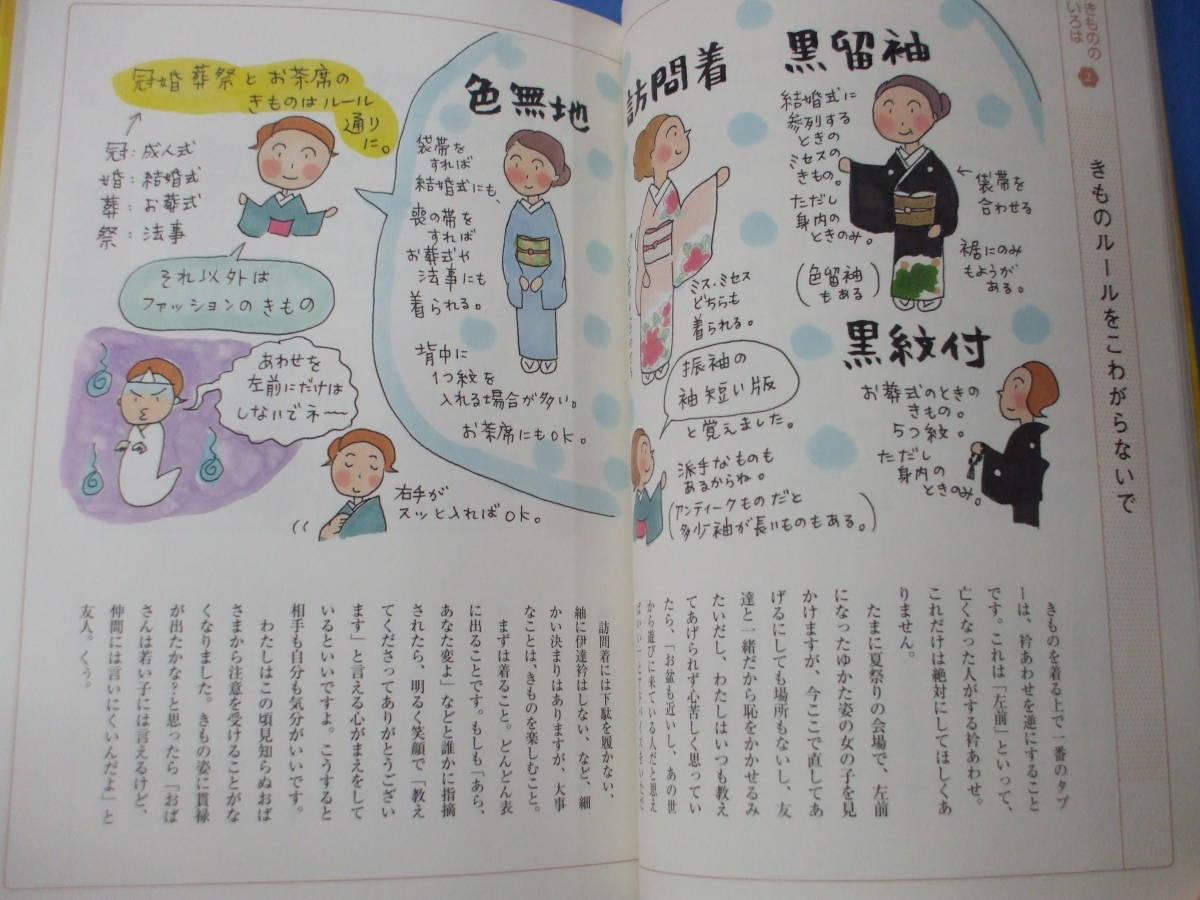 きものの
いろは
2
きものルールをこわがらないで
黒留袖
結婚式に
参列する
ときの
ミセスの
きもの。
ただし
身内の
ときのみ。
(色留袖
もある)
←袋帯を
合わせる
裾にのみ
もようが
ある。
訪問着
ミス・ミセス
どちらも
着られる。
振袖の
袖短い版
と覚えました。
派手なものも
あるからね。
(アンティークものだと
多少袖が長いものもある。)
黒紋付
お葬式のときの
きもの。
5つ紋。
ただし
身内の
ときのみ。
色無地
袋帯を
すれば
結婚式にも、
喪の帯を
すれば
お葬式や
法事にも
着られる。
背中に
1つ紋を
入れる場合が多い。
お茶席にもOK。
冠婚葬祭とお茶席の
きものはルール
通り
に。
冠:成人式
婚:結婚式
葬:お葬式
祭:法事
それ以外は
ファッションのきもの
あわせを
左前にだけは
しないでネ〜
右手が
スッと入ればOK。
きものを着る上で一番のタブ
ーは、衿あわせを逆にすること
です。これは「左前」といって、
亡くなった人がする衿あわせ。
これだけは絶対にしてほしくあ
りません。
たまに夏祭りの会場で、左前
になったゆかた姿の女の子を見
かけますが、今ここで直してあ
げるにしても場所もないし、友
達と一緒だから恥をかかせるみ
たいだし、わたしはいつも教え
てあげられず心苦しく思ってい
たら、「お盆も近いし、あの世
から遊びに来ている人だと思え
訪問着には下駄を履かない、
紬に伊達衿はしない、など、細
かい決まりはありますが、大事
なことは、きものを楽しむこと。
まずは着ること。どんどん表
に出ることです。もしも「あら、
あなた変よ」などと誰かに指摘
されたら、明るく笑顔で「教え
てくださってありがとうござい
ます」と言える心がまえをして
いるといいですよ。こうすると
相手も自分も気分がいいです。
わたしはこの頃見知らぬおば
さまから注意を受けることがな
くなりました。きもの姿に貫禄
が出たかな?と思ったら「おば
さんは若い子には言えるけど、
仲間には言いにくいんだよ」と
友人。くぅ。